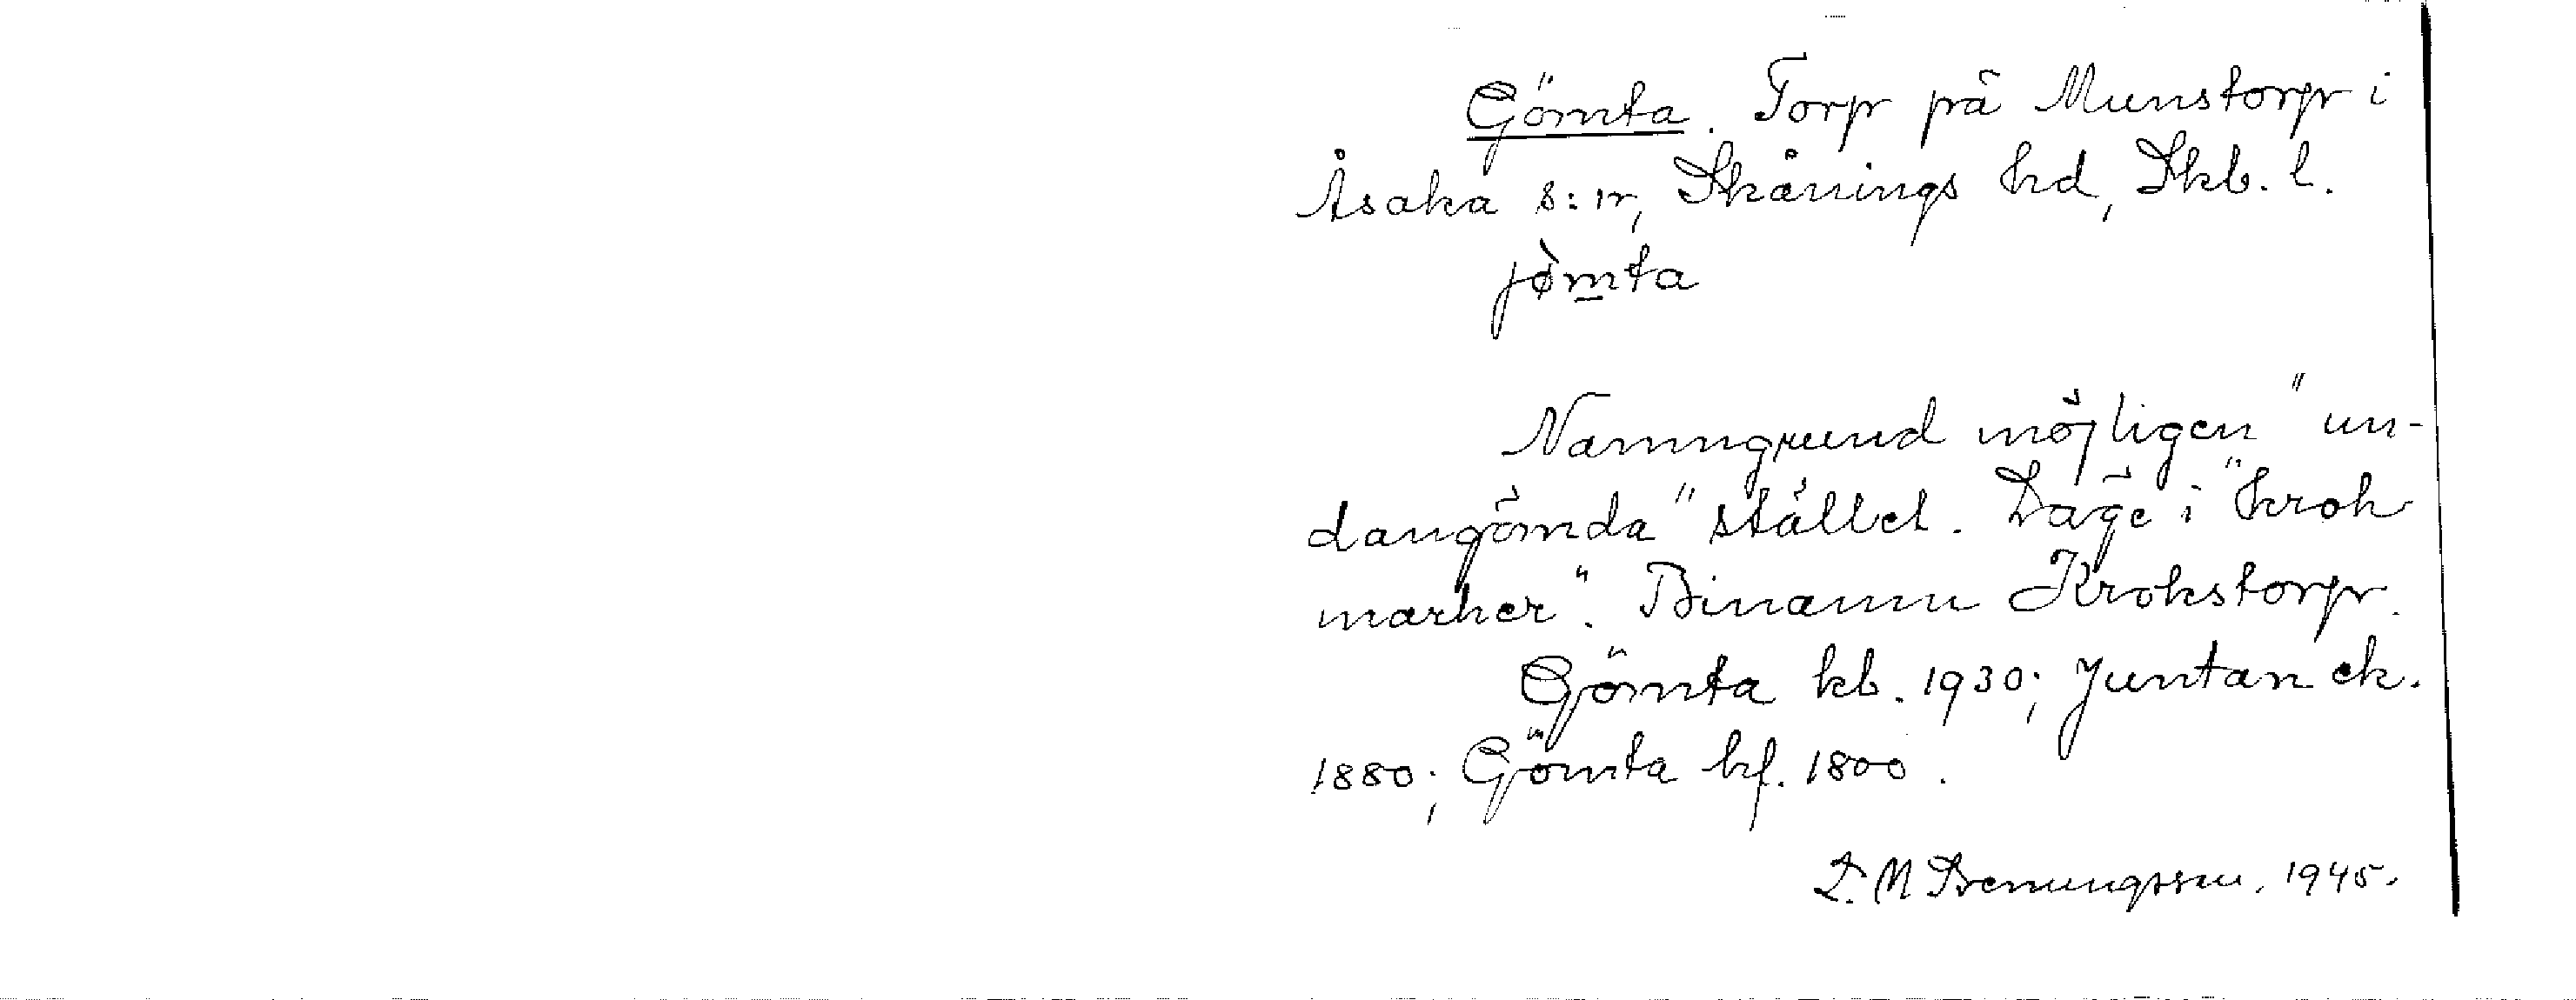 Gömta. Torp på Munstorp i
Åsaka s:n, Skånings hd, Skb. l.
jømta
Namngrund möjligen "un-
dangömda" stället. Läge i "krok
marker". Binamn Krokstorp.
Gömta kb. 1930; Juntan ek.
1880; Gömta hf. 1800.
1945.